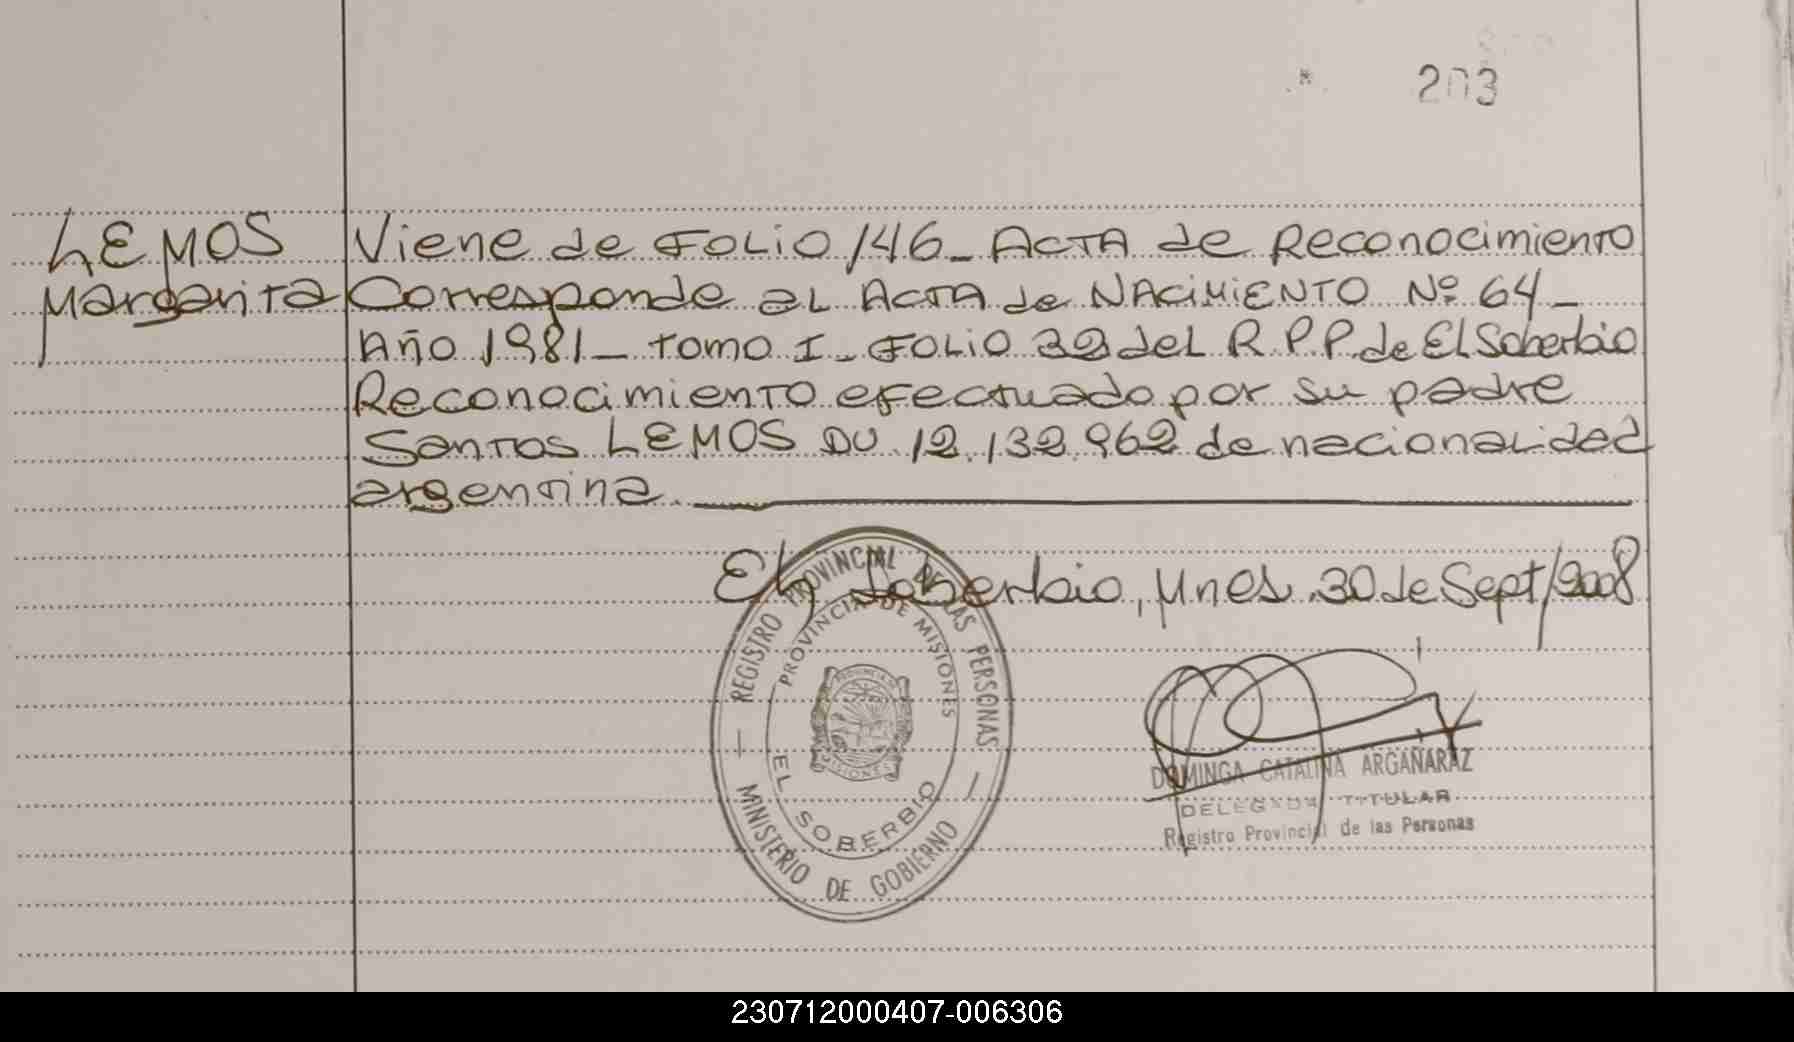 203
LEMOS
Margarita
Viene de FOLIO 146_ ACTA de Reconocimiento
Corresponde al ACTA de NACIMIENTO Nº 64_
Año 1981_ tomo I_ FOLIO 32 del R.P.P. de El Soberbio
Reconocimiento efectuado por su padre
Santos LEMOS DU 12.132.962 de nacionalidad
argentina.
El Soberbio, Mnes. 30 de Sept/2008
REGISTRO PROVINCIAL DE LAS PERSONAS
PROVINCIA DE MISIONES
PROVINCIA DE
MISIONES
EL SOBERBIO
MINISTERIO DE GOBIERNO
DOMINGA CATALINA ARGAÑARAZ
DELEGADA TITULAR
Registro Provincial de las Personas
230712000407-006306